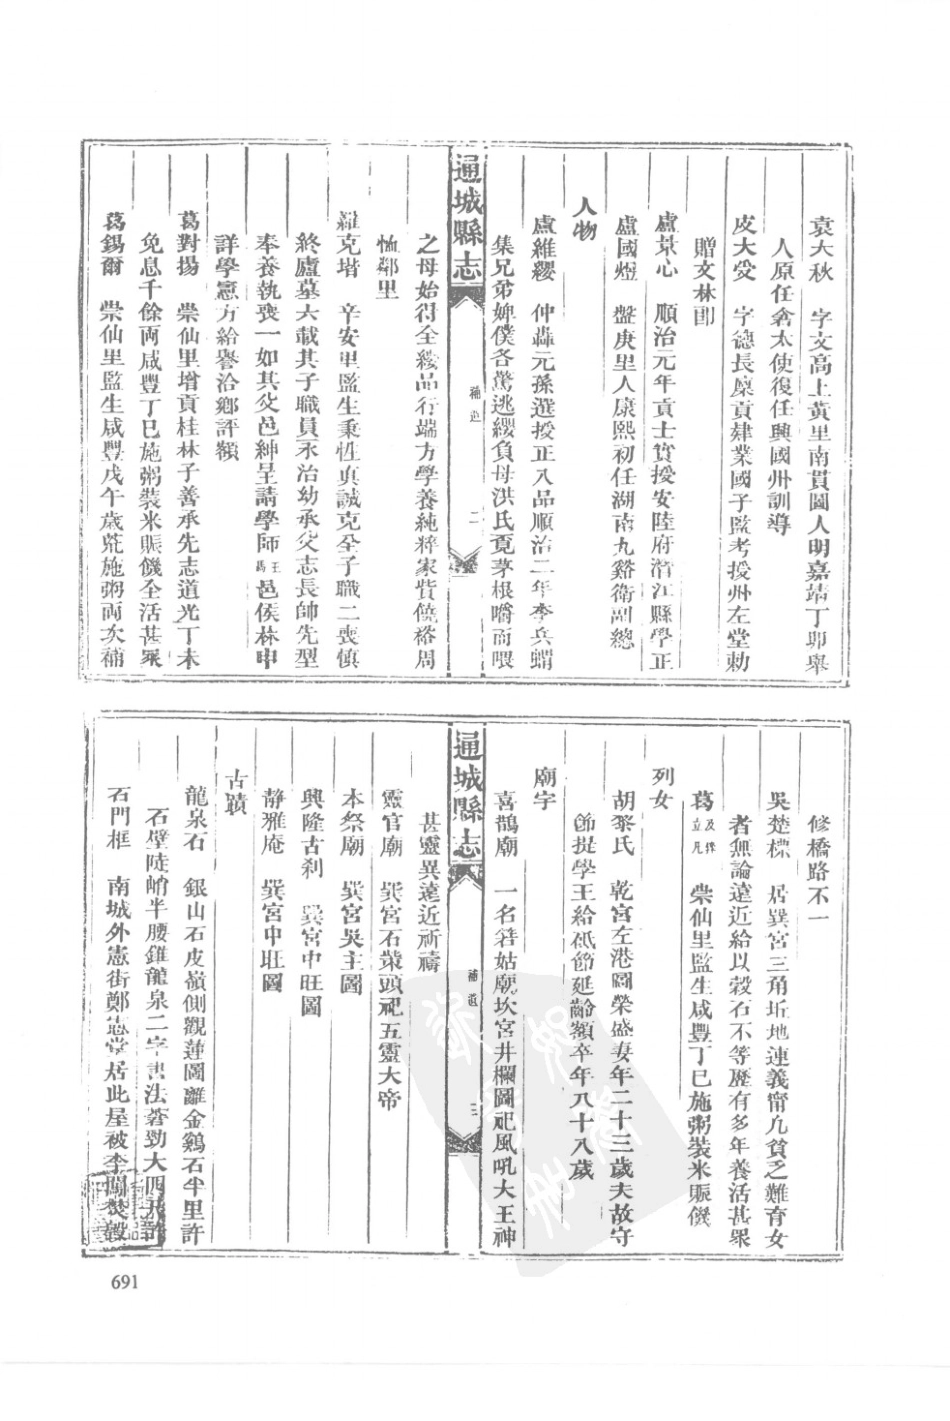 袁大秋　字文高上黃里南貫圖人明嘉靖丁卯舉
人原任倉太使復任興國州訓導
皮大受　字德長廩貢肄業國子監考授州左堂勅
贈文林郎
盧景心　順治元年貢士實授安陸府潛江縣學正
盧國煜　盤庚里人康熙初任湖南九谿衛副總
人物
盧維纓　仲譁元孫選授正八品順治二年李兵蝟
集兄弟婢僕各驚逃纓負母洪氏覓茅根嚼而喂
通城縣志　補遺　二
之母始得全纓品行端方學養純粹家貲饒裕周
恤鄰里
羅克堦　辛安里監生秉性眞誠克全子職二喪慎
終廬墓六載其子職員永治幼承父志長師先型
奉養執喪一如其父邑紳呈請學師王馬邑侯林申
詳學憲方給譽洽鄉評額
葛對揚　崇仙里增貢桂林子善承先志道光丁未
免息千餘兩咸豐丁巳施粥裝米賑饑全活甚眾
葛錫爾　崇仙里監生咸豐戊午歲荒施粥兩次補
修橋路不一
吳楚標　居巽宮三角坵地連義甯凡貧乏難育女
者無論遠近給以穀石不等歷有多年養活甚眾
葛及立凡　崇仙里監生咸豐丁巳施粥裝米賑饑
列女
胡黎氏　乾宮左港圖榮盛妻年二十三歲夫故守
節提學王給祇節延齡額卒年八十八歲
廟宇
喜鵲廟　一名箬姑廟坎宮井欄圖祀風吼大王神
通城縣志　補遺　三
甚靈異遠近祈禱
靈官廟　巽宮石菜頭祀五靈大帝
本祭廟　巽宮吳主圖
興隆古刹　巽宮中旺圖
靜雅庵　巽宮中旺圖
古蹟
龍泉石　銀山石皮嶺側觀蓮圖離金鷄石半里許
石壁陡峭半腰鐫龍泉二字書法蒼勁大四五許
石門框　南城外憲街鄭志堂居此屋被李闖焚毀
691